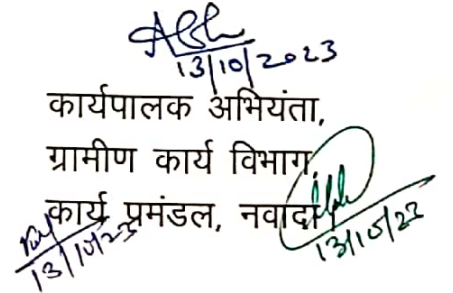 13/10/2023
कार्यपालक अभियंता,
ग्रामीण कार्य विभाग,
कार्य प्रमंडल, नवादा
13/10/23
13/10/23